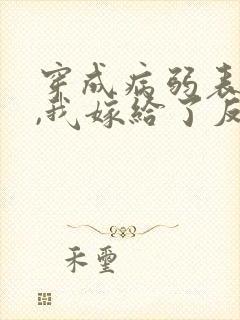 穿成病弱表
,我嫁给了反
禾壐